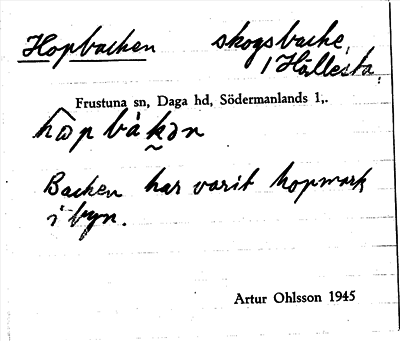 Hopbacken skogsbacke,
i Hållesta.
Frustuna sn, Daga hd, Södermanlands l,.
hɷ̂p bàkən
Backen har varit hopmark
i byn.
Artur Ohlsson 1945